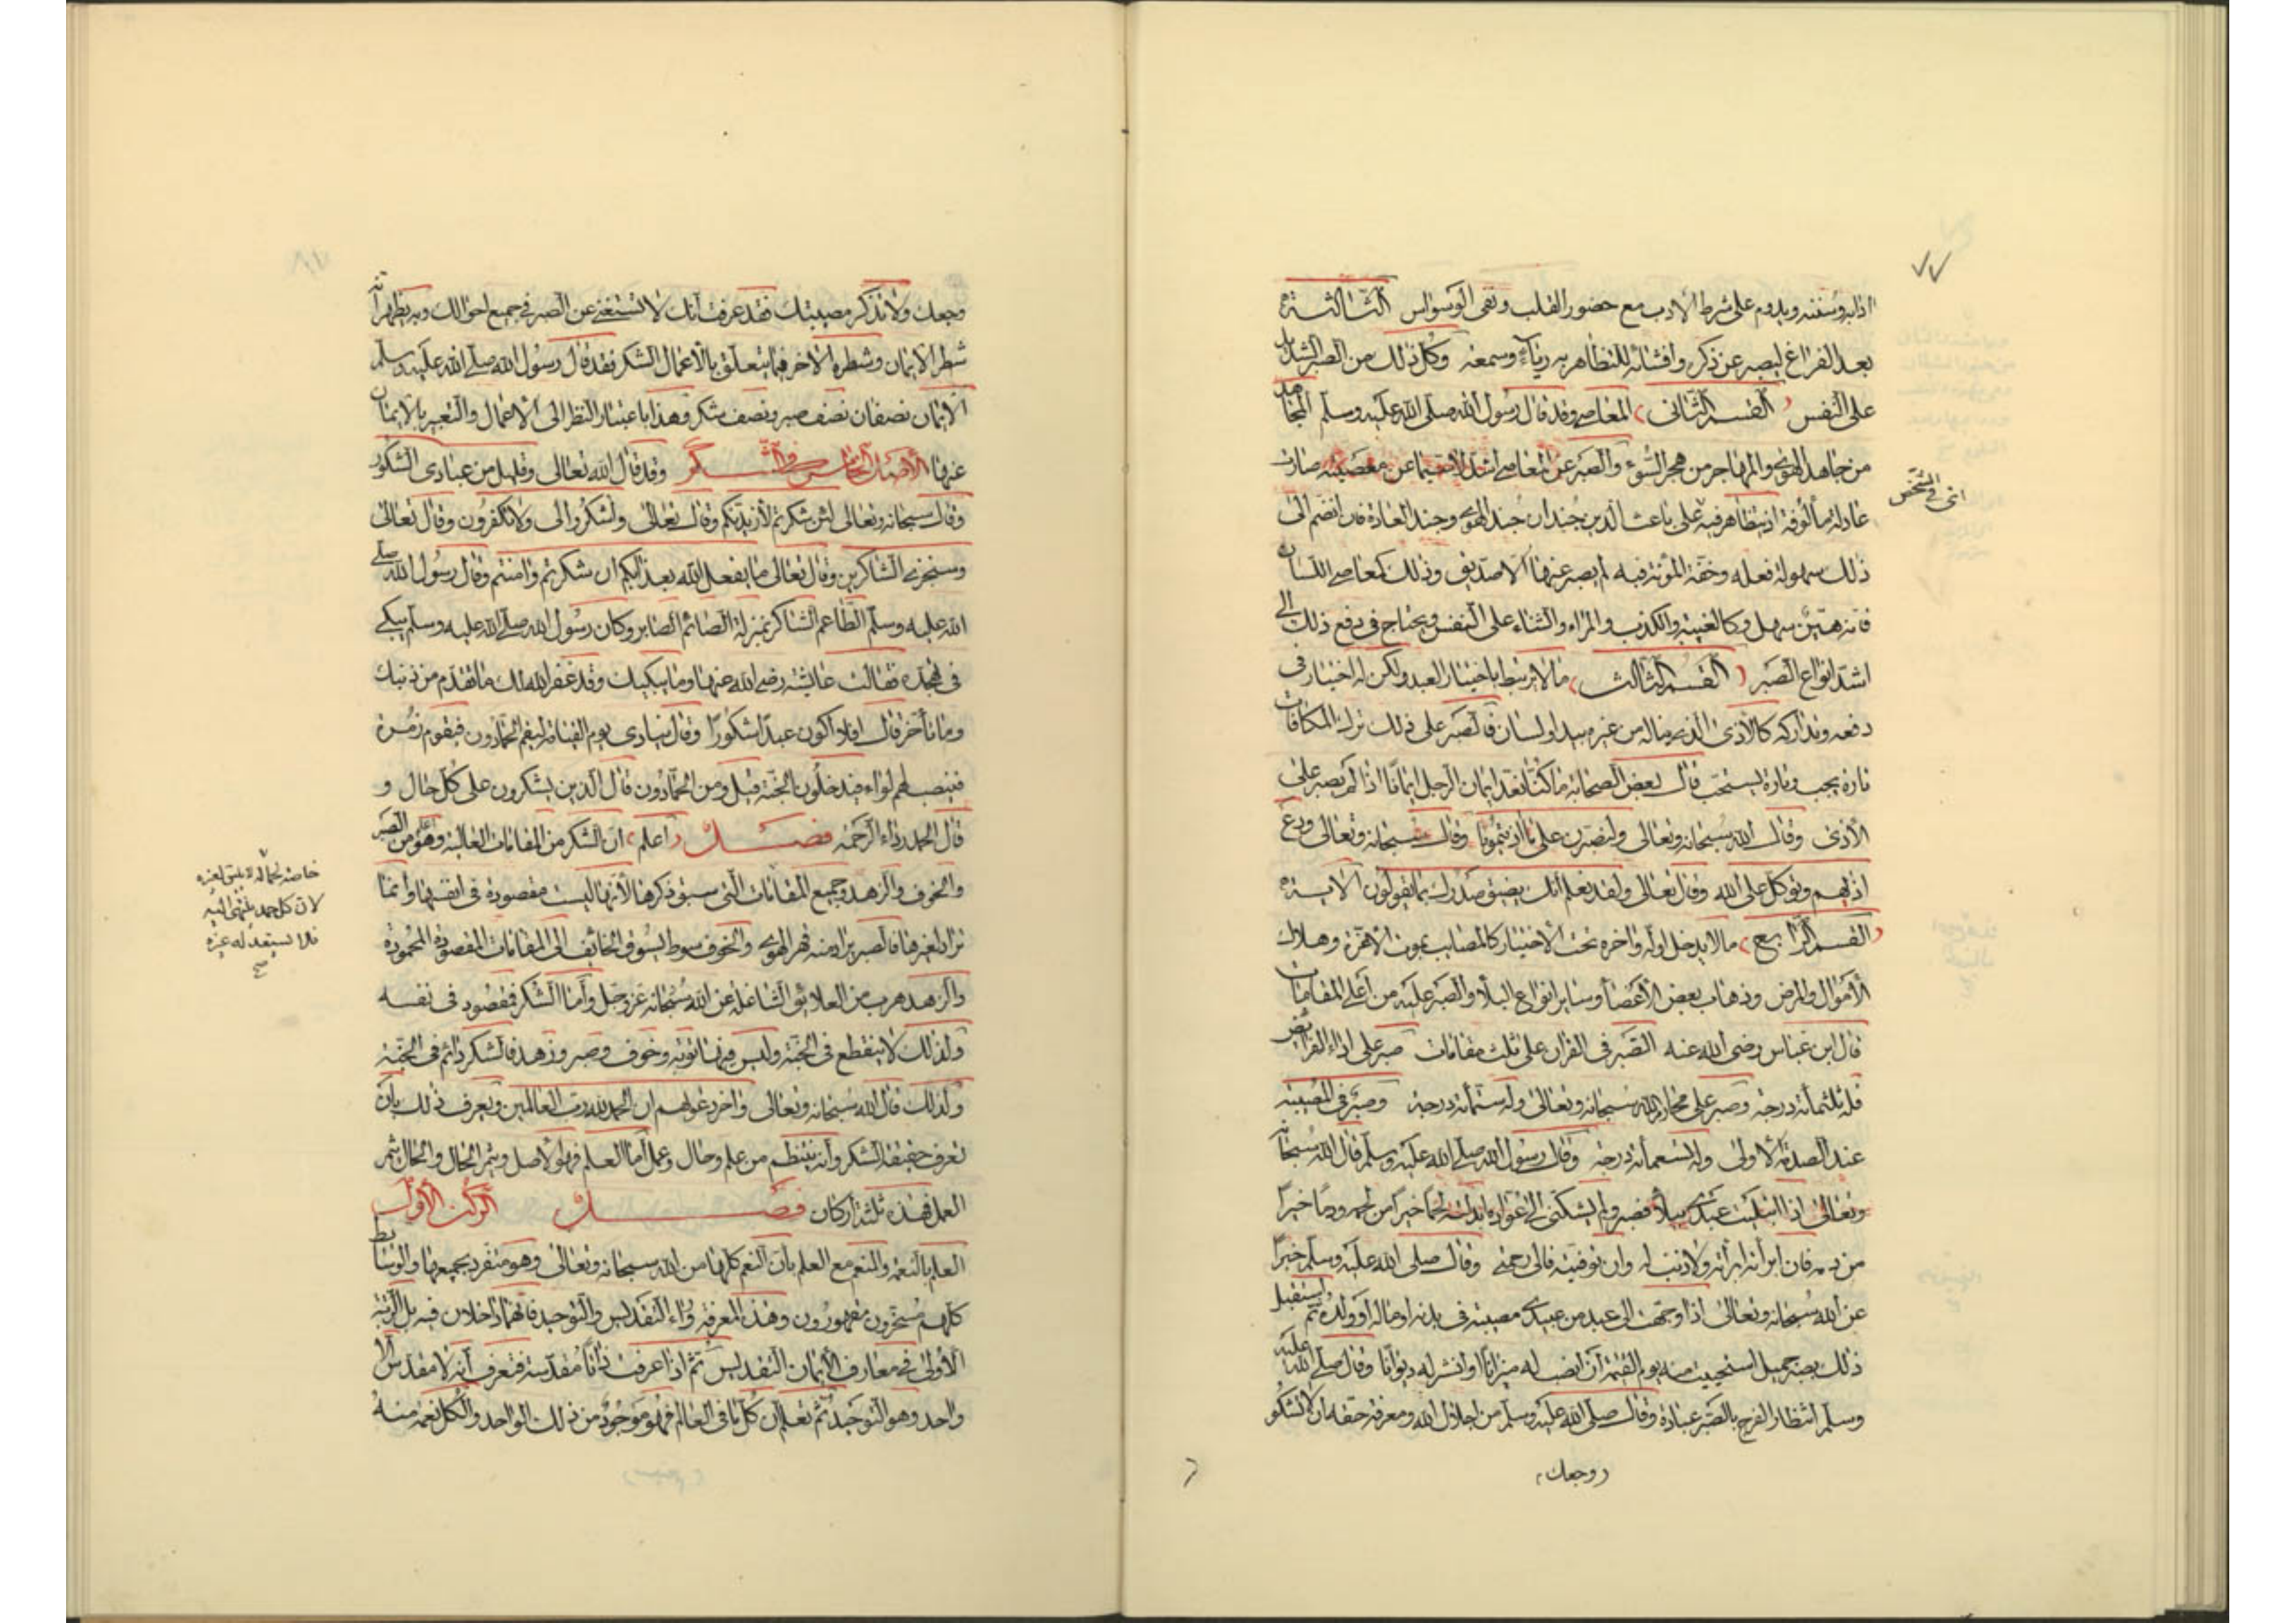 ٧٧
ادابه وسننه ويدوم على شرط الادب مع حضور القلب ونفى الوسواس الثالثة
بعد الفراغ ليصبر عن ذكره وافشائه للتظاهر به رياء وسمعة وكل ذلك من الصبر الشديد
على النفس القسم الثانى المعاصى وقد قال رسول الله صلى الله عليه وسلم المجاهد
من جاهد الهوى والمهاجر من هجر السوء والصبر عن المعاصى اشد لا سيما عن معصية صارت
عادة مألوفة اذ يتظاهر فيه على باعث الدين جندان جند الهوى وجند العادة فان انضم الى
ذلك سهولة فعله وخفة المؤنة فيه لم يصبر عنها الا صديق وذلك كمعاصى اللسان
فانه هين سهل وكالغيبة والكذب والمراء والثناء على النفس ويحتاج فى دفع ذلك الى
اشد انواع الصبر القسم الثالث ما لا يرتبط باختيار العبد ولكن له اختيار فى
دفعه وتداركه كالأذى الذى يناله من غيره بيد او لسان فالصبر على ذلك بترك المكافات
تارة يجب وتارة يستحب قال بعض الصحابة ما كنا نعد ايمان الرجل ايمانا اذا لم يصبر على
الأذى وقال الله سبحانه وتعالى ولنصبرن على ما اذيتمونا وقال سبحانه وتعالى ودع
اذيهم وتوكل على الله وقال تعالى ولقد نعلم انك يضيق صدرك بما يقولون الاية
القسم الرابع ما لا يدخل اوله واخره تحت الاختيار كالمصايب بموت الاعزة وهلاك
الأموال والمرض وذهاب بعض الأعضاء وساير انواع البلاء والصبر عليه من أعلى المقامات
قال ابن عباس رضى الله عنه الصبر فى القران على ثلث مقامات صبر على اداء الفرائض
فله ثلثمأئة درجة وصبر على محارم الله سبحانه وتعالى وله ستمأئة درجة وصبر فى المصيبة
عند الصدمة الاولى وله تسعمائة درجة وقال رسول الله صلى الله عليه وسلم قال الله سبحانه
وتعالى اذا ابتليت عبدى ببلاء فصبر ولم يشكنى الى عواده ابدلته لحما خيرا من لحمه ودما خيرا
من دمه فان ابرأته ابرأته ولا ذنب له وان توفيته فالى رحمتى وقال صلى الله عليه وسلم خبرا
عن الله سبحانه وتعالى اذا وجهت الى عبد من عبيدى مصيبة فى بدنه او ماله او ولده ثم استقبل
ذلك بصبر جميل استحييت منه يوم القيمة ان انصب له ميزانا او انشر له ديوانا وقال صلى الله عليه
وسلم انتظار الفرج بالصبر عبادة وقال صلى الله عليه وسلم من اجلال الله ومعرفة حقه ان لا تشكو
وجعك
وجعك ولا تذكر مصيبتك فقد عرفت انك لا تستغنى عن الصبر فى جميع احوالك وبه يظهر انه
شطر الايمان وشطره الاخر فيما يتعلق بالأعمال الشكر فقد قال رسول الله صلى الله عليه وسلم
الايمان نصفان نصف صبر ونصف شكر وهذا باعتبار النظر الى الاعمال والتعبير بالايمان
عنها الأصل الخامس فى الشكر وقد قال الله تعالى وقليل من عبادى الشكور
وقال سبحانه وتعالى لئن شكرتم لأزيدنكم وقال تعالى واشكروا لى ولا تكفرون وقال تعالى
وسنجزى الشاكرين وقال تعالى ما يفعل الله بعذابكم ان شكرتم وامنتم وقال رسول الله صلى
الله عليه وسلم الطاعم الشاكر بمنزلة الصائم الصابر وكان رسول الله صلى الله عليه وسلم يبكى
فى تهجده فقالت عائشة رضى الله عنها وما يبكيك وقد غفر الله لك ما تقدم من ذنبك
وما تأخر قال افلا اكون عبدا شكورا وقال ينادى يوم القيامة ليقم الحمادون فيقوم زمرة
فينصب لهم لواء فيدخلون الجنة قيل ومن الحمادون قال الذين يشكرون على كل حال و
قال الحمد رداء الرحمن فصل اعلم ان الشكر من المقامات العالية وهو اعلى من الصبر
والخوف والزهد وجميع المقامات التى سبق ذكرها لأنها ليست مقصودة فى انفسها وانما
تراد لغيرها فالصبر يراد منه قهر الهوى والخوف سوط يسوق الخائف الى المقامات المقصودة المحمودة
والزهد هرب من العلائق الشاغلة عن الله سبحانه عز وجل وأما الشكر فمقصود فى نفسه
ولذلك لا ينقطع فى الجنة وليس فيها توبة وخوف وصبر وزهد فالشكر دائم فى الجنة
ولذلك قال الله سبحانه وتعالى واخر دعواهم ان الحمد لله رب العالمين ويعرف ذلك بان
تعرف حقيقة الشكر وأنه ينتظم من علم وحال وعمل أما العلم فهو الأصل ويثمر الحال والحال يثمر
العمل فهذه ثلثة اركان فصل الركن الأول
العلم بالنعمة والمنعم مع العلم بان النعم كلها من الله سبحانه وتعالى وهو متفرد بجميعها والوسايط
كلهم مسخرون مقهورون وهذه المعرفة وراء التقديس والتوحيد فانهما داخلان فيه بل الرتبة
الاولى فى معارف الايمان التقديس ثم اذا عرفت ذاتا مقدسة فتعرف أنه لا مقدس الا
واحد وهو التوحيد ثم تعلم ان كل ما فى العالم فهو موجود من ذلك الواحد والكل نعمة منه
لان كل حمد ينتهى اليه